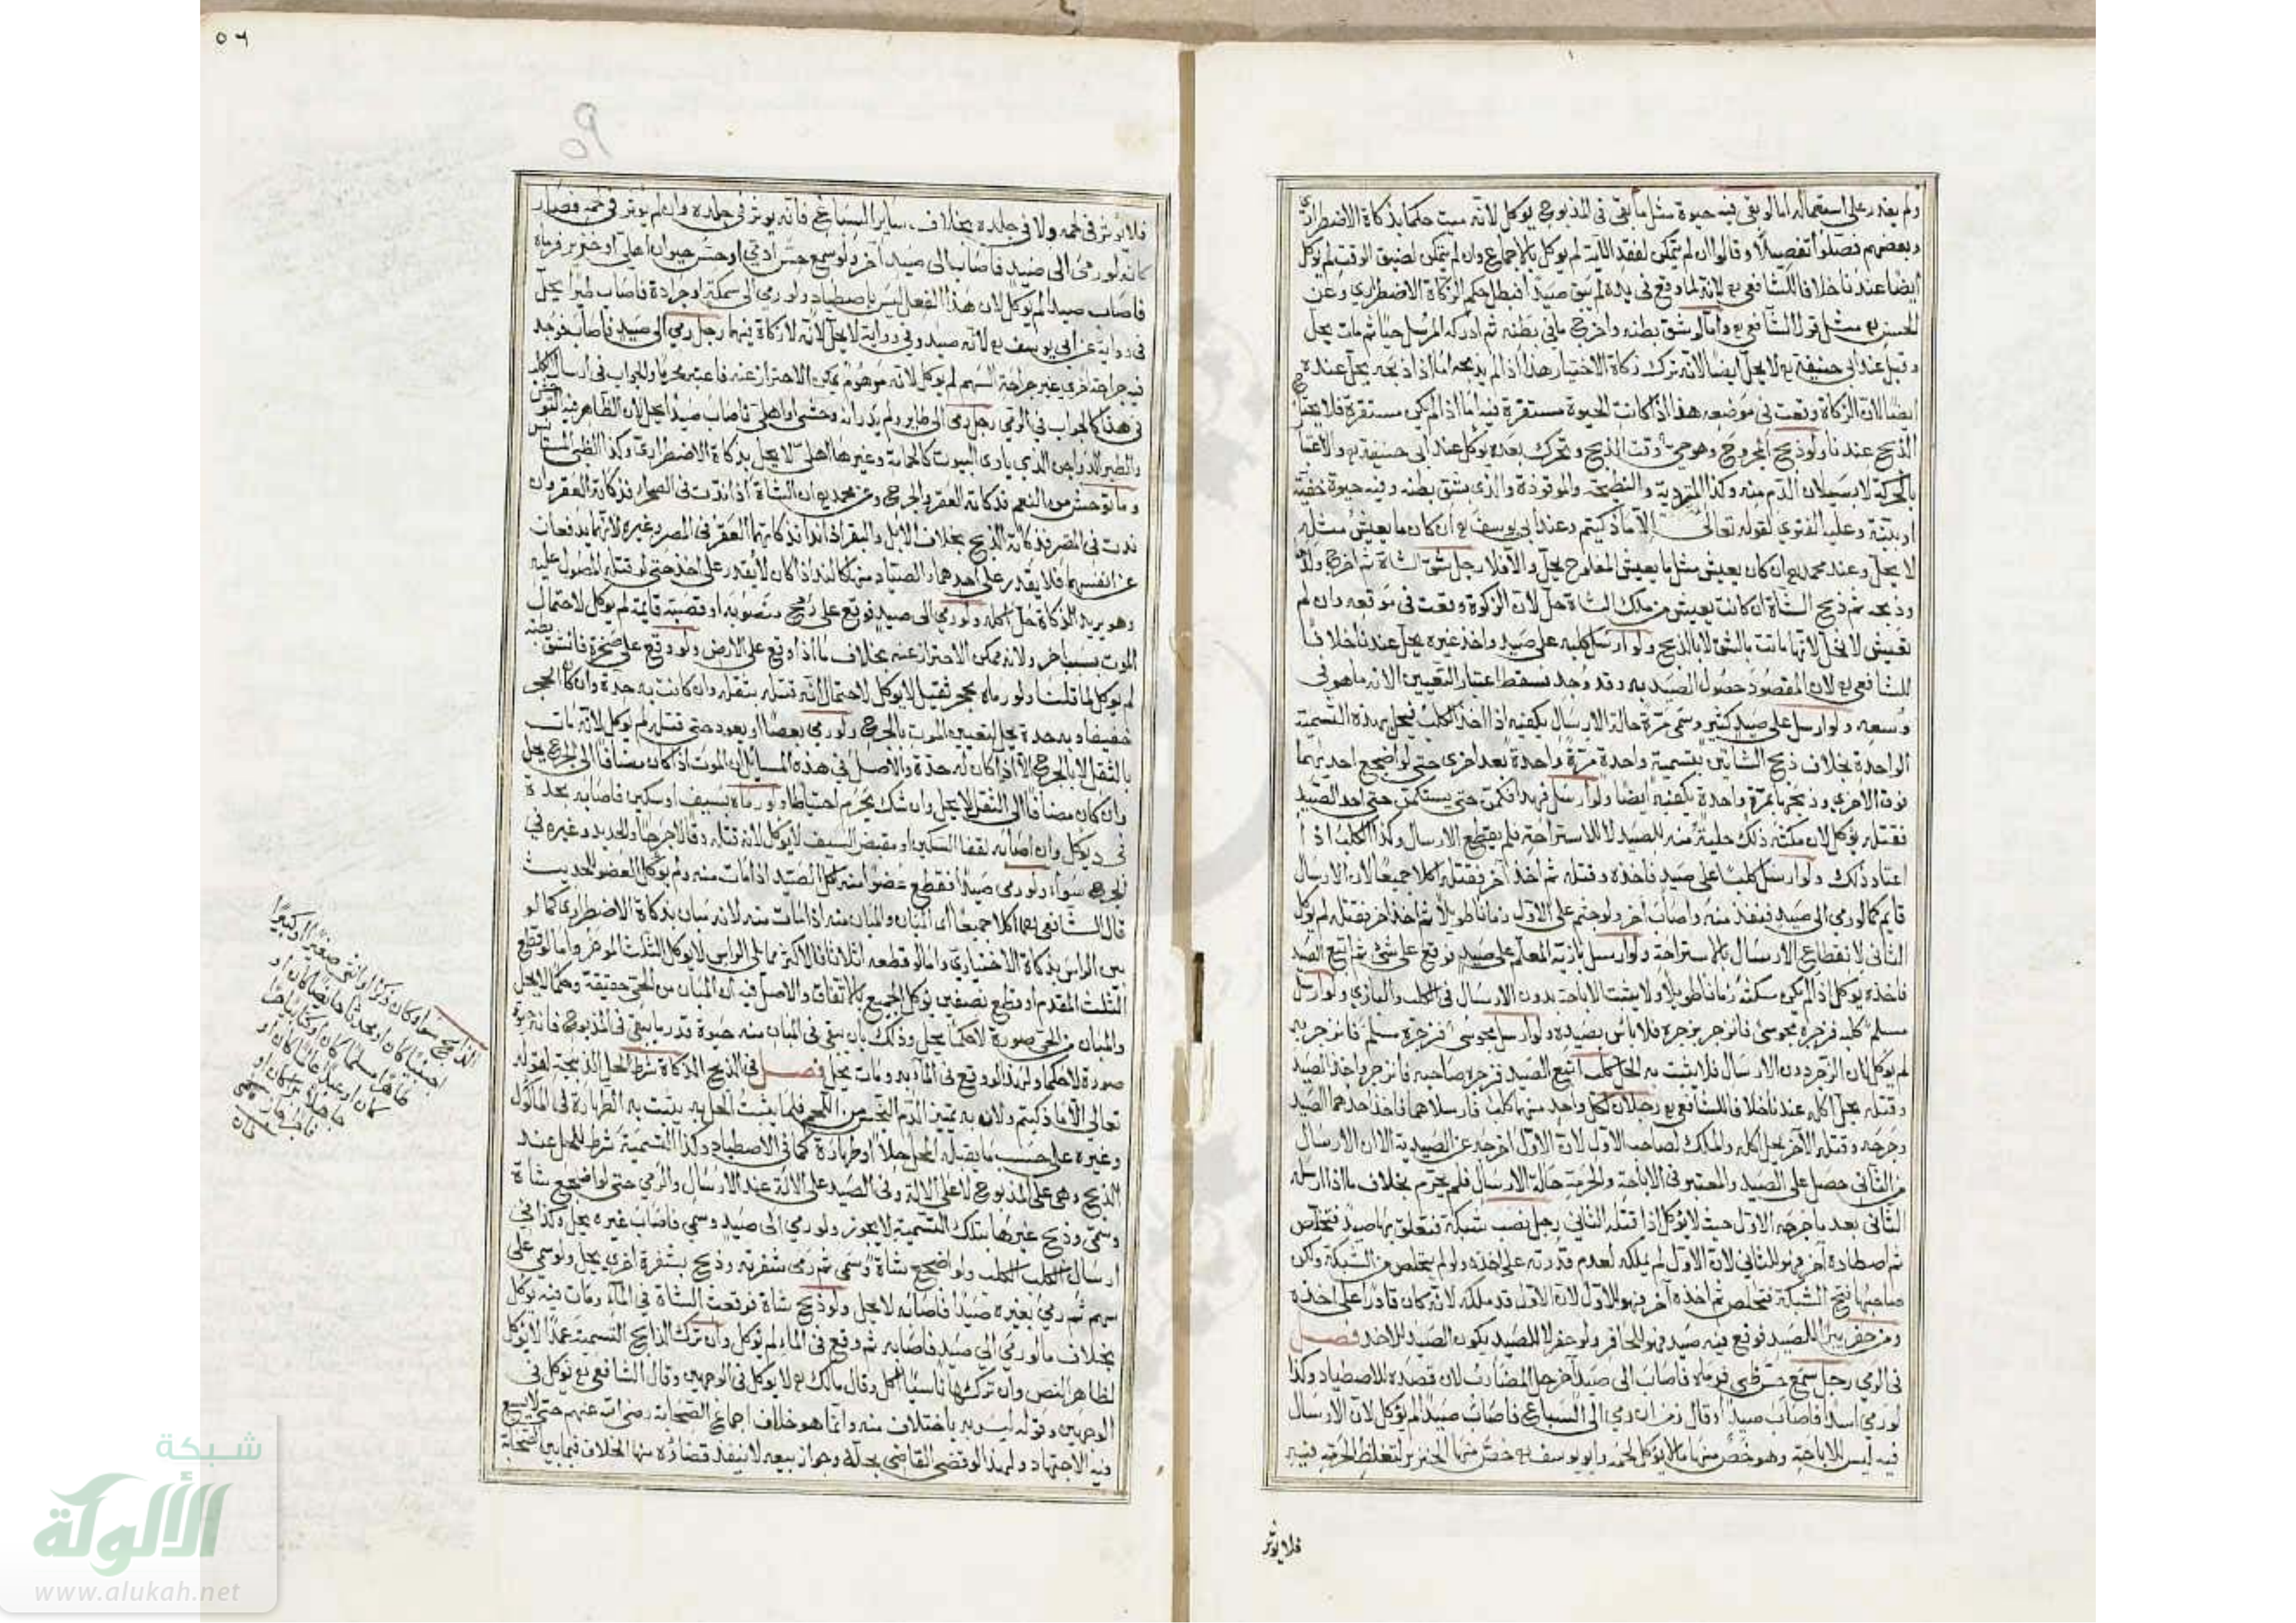 ولم يقدر على استعماله اما لو بقى فيه حيوة مثل ما بقى فى المذبوح يوكل لانه ميت حكما بذكاة الاضطرارى
وبعضهم فصلوا تفصيلا وقالوا ان لم يتمكن لفقد الآلة لم يوكل بالاجماع وان لم يتمكن لضيق الوقت لم يوكل
ايضا عندنا خلافا للشافعى رح لانه لما وقع فى يده لم يبق صيدا فبطل حكم الزكاة الاضطرارى وعن
الحسن رح مثل قول الشافعى رح واما لو شق بطنه واخرج ما فى بطنه ثم ادركه المرسل حيا ثم مات يحل
وقيل عند ابى حنيفة رح لا يحل ايضا لانه ترك زكاة الاختيار هذا اذا لم يذبحه اما اذا ذبحه يحل عنده
ايضا لان الزكاة وقعت فى موضعه هذا اذا كانت الحيوة مستقرة فيه اما اذا لم يكن مستقرة فلا يحتاج
الذبح عندنا ولو ذبح المجروح وهو حى وقت الذبح وتحرك بعده يوكل عند ابى حنيفة رح والاعتبار
بالحركة لا بسيلان الدم منه وكذا المتردية والنطيحة والموقوذة والذى شق بطنه وفيه حيوة خفية
او بينة وعليه الفتوى لقوله تعالى الا ما ذكيتم وعند ابى يوسف رح ان كان ما يعيش مثله
لا يحل وعند محمد رح ان كان يعيش مثل ما يعيش المذبوح يحل والا فلا رجل شق الشاة ثم اخرج ولدا
وذبحه ثم ذبح الشاة ان كانت يعيش من ملك الشاة حل لان الزكوة وقعت فى موقعه وان لم
تعيش لا يحل لانها ماتت بالشق لا بالذبح ولو ارسل كلبه على صيد واخذ غيره يحل عندنا خلافا
للشافعى رح لان المقصود حصول الصيد به وقد وجد فسقط اعتبار التعيين لانه ما هو فى
وسعه ولو ارسل على صيد كثير وسمى مرة حالة الارسال يكفيه اذا اخذ الكلب فيحل بهذه التسمية
الواحدة بخلاف ذبح الشاتين بتسمية واحدة مرة واحدة بعد اخرى حتى لو اضجع احديهما
فوق الاخرى وذبحهما بمرة واحدة يكفيه ايضا ولو ارسل فهدا فكمن حتى يستمكن حتى اخذ الصيد
فقتله يوكل لان مكثه ذلك حيلة منه للصيد لا للاستراحة فلم يقطع الارسال وكذا الكلب اذا
اعتاد ذلك ولو ارسل كلبا على صيد فاخذه وقتله ثم اخذ آخر فقتله اكلا جميعا لان الارسال
قايم كما لو رمى الى صيد فنفذ منه واصاب آخر ولو جثم على الاول زمانا طويلا ثم اخذ اخر فقتله لم يوكل
الثانى لانقطاع الارسال بالاستراحة ولو ارسل بازيه المعلم على صيد فوقع على شئ ثم اتبع الصيد
فاخذه يوكل اذا لم يكن سكنه زمانا طويلا ولا يثبت الاباحة بدون الارسال فى الكلب والبازى ولو ارسل
مسلم كلبه فزجره مجوسى فانزجر بزجره فلا باس بصيده ولو ارسل مجوسى فزجره مسلم فانزجر به
لم يوكل لان الزجر دون الارسال فلا يثبت به الحل كلب اتبع الصيد فزجره صاحبه فانزجر واخذ الصيد
وقتله يحل اكله عندنا خلافا للشافعى رح رجلان لكل واحد منهما كلب فارسلاهما فاخذ احدهما الصيد
وجرحه وقتله الآخر يحل اكله والملك لصاحب الاول لان الاول اخرجه عن الصيدية الا ان الارسال
من الثانى حصل على الصيد والمعتبر فى الاباحة والحرمة حالة الارسال فلم يحرم بخلاف ما اذا ارسله
الثانى بعد ما جرحه الاول حيث لا يوكل اذا قتله الثانى رجل نصب شبكة فتعلق بها صيد فتخلص
ثم اصطاده آخر فهو للثانى لان الاول لم يملكه لعدم قدرته على اخذه ولو لم يتخلص من الشبكة ولكن
صاحبها فتح الشبكة فتخلص ثم اخذه آخر فهو للاول لان الاول قد ملكه لانه كان قادرا على اخذه
ومن حفر بيرا للصيد فوقع فيه صيد فهو للحافر ولو حفر لا للصيد يكون الصيد للاخذ فصل
فى الرمى رجل سمع حس ظبى فرماه فاصاب الى صيد آخر حل المصاب لان قصده للاصطياد وكذا
لو رمى اسدا فاصاب صيدا وقال زفر ان رمى الى السباع فاصاب صيدا لم يوكل لان الارسال
فيه ليس للاباحة وهو خص منها ما لا يوكل لحمه وابو يوسف رح خص منها الخنزير لتغلظ الحرمة فيه
فلا يوثر
٥٦
فلا يوثر فى لحمه ولا فى جلده بخلاف ساير السباع فانه يوثر فى جلده وان لم يوثر فى لحمه فصار
كانه لو رمى الى صيد فاصاب الى صيد آخر ولو سمع حس ادمى او حس حيوان اهلى او خنزير فرماه
فاصاب صيدا لم يوكل لان هذا الفعل ليس باصطياد ولو رمى الى سمكة او جرادة فاصاب طيرا يحل
فى رواية عن ابى يوسف رح لانه صيد وفى رواية لا يحل لانه لا زكاة فيهما رجل رمى الى صيد فاصاب فوجد
فيه جراحة اخرى غير جراحة السهم لم يوكل لانه موهوم يمكن الاحتراز عنه فاعتبر محرما والجواب فى ارسال الكلب
فى هذا كالجواب فى الرمى رجل رمى الى طاير ولم يدر انه وحشى او اهلى فاصاب صيدا يحل لان الظاهر فيه التوحش
والطير الدواجن الذى ياوى البيوت كالحمامة وغيرها اهلى لا يحل بذكاة الاضطرارى وكذا الظبى المستانس
وما توحش من النعم فذكاته العقر والجرح وعن محمد رح ان الشاة اذا ندت فى الصحراء فذكاته العقر وان
ندت فى المصر فذكاته الذبح بخلاف الابل والبقر اذا ندا فذكاتهما العقر فى المصر وغيره لانهما يدفعان
عن انفسهما فلا يقدر على احدهما والصياد منهما كالند اذا كان لا يقدر على اخذه حتى لو قتله المصول عليه
وهو يريد الذكاة حل اكله ولو رمى الى صيد فوقع على رمح منصوبة او قصبة قايمة لم يوكل لاحتمال
الموت بسبب اخر ولانه ممكن الاحتراز عنه بخلاف ما اذا وقع على الارض ولو وقع على صخرة فانشق بطنه
لم يوكل لما قلنا ولو رماه بحجر ثقيل لا يوكل لاحتمال انه قتله بثقله وان كانت به حدة وان كان الحجر
خفيفا وبه حدة يحل لتعيين الموت بالجرح ولو رمى بعصا او بعود حتى قتله لم يوكل لانه مات
بالثقل لا بالجرح الا اذا كان له حدة والاصل فى هذه المسايل ان الموت اذا كان مضافا الى الجرح يحل
وان كان مضافا الى الثقل لا يحل وان شك يحرم احتياطا ولو رماه بسيف او سكين فاصابه بحدة
فجرحه يوكل وان اصابه بقفا السكين او مقبض السيف لا يوكل لانه قتله دقا لا جرحا والحديد وغيره فى
الجرح سواء ولو رمى صيدا فقطع عضوا منه اكل الصيد اذا مات منه ولم يوكل العضو للحديث
قال الشافعى رح اكلا جميعا اى المبان والمبان منه اذا مات منه لانه مبان بذكاة الاضطرارى كما لو
بين الراس بذكاة الاختيارى واما لو قطعه اثلاثا فالاكثر مما يلى الراس لا يوكل الثلث الموخر واما لو قطع
الثلث المقدم او قطع نصفين يوكل الجميع بالاتفاق والاصل فيه ان المبان من الحى حقيقة وحكما لا يحل
والمبان من الحى صورة لا حكما يحل وذلك بان يبقى فى المبان منه حيوة قدر ما يبقى فى المذبوح فانه حيوة
صورة لا حكما ولهذا لو وقع فى الماء وبه ومات يحل فصل فى الذبح الذكاة شرط لحل الذبيحة لقوله
تعالى الا ما ذكيتم ولان به تميز الدم النجس من اللحم فكما يثبت الحل به يثبت به الطهارة فى الماكول
وغيره على حسب ما يقبله المحل حلا او طهارة كما فى الاصطياد وكذا التسمية شرط للحل عند
الذبح وهى على المذبوح لا على الالة وفى الصيد على الالة عند الارسال والرمى حتى لو اضجع شاة
وسمى وذبح غيرها بتلك التسمية لا يجوز ولو رمى الى صيد وسمى فاصاب غيره يحل وكذا فى
ارسال الكلب ولو اضجع شاة وسمى ثم رمى شفرته وذبح بشفرة اخرى يحل ولو سمى على
سهم ثم رمى بغيره صيدا فاصابه لا يحل ولو ذبح شاة فوقعت الشاة فى الماء ومات فيه يوكل
بخلاف ما لو رمى الى صيد فاصابه ثم وقع فى الماء لم يوكل وان ترك الذابح التسمية عمدا لا يوكل
لظاهر النص وان تركها ناسيا اكل وقال مالك رح لا يوكل فى الوجهين وقال الشافعى رح يوكل فى
الوجهين وقوله ليس به باختلاف منه وانما هو خلاف اجماع الصحابة رضى الله عنهم حتى لا يسع
فيه الاجتهاد ولهذا لو قضى القاضى بحله وجواز بيعه لا ينفذ قضاؤه منها الخلاف فيما بين الصحابة
الذابح سواء كان ذكرا او انثى صغيرا او كبيرا
كان او
طاهرا مسلما كان او كتابيا
شبكة
الألوكة
www.alukah.net